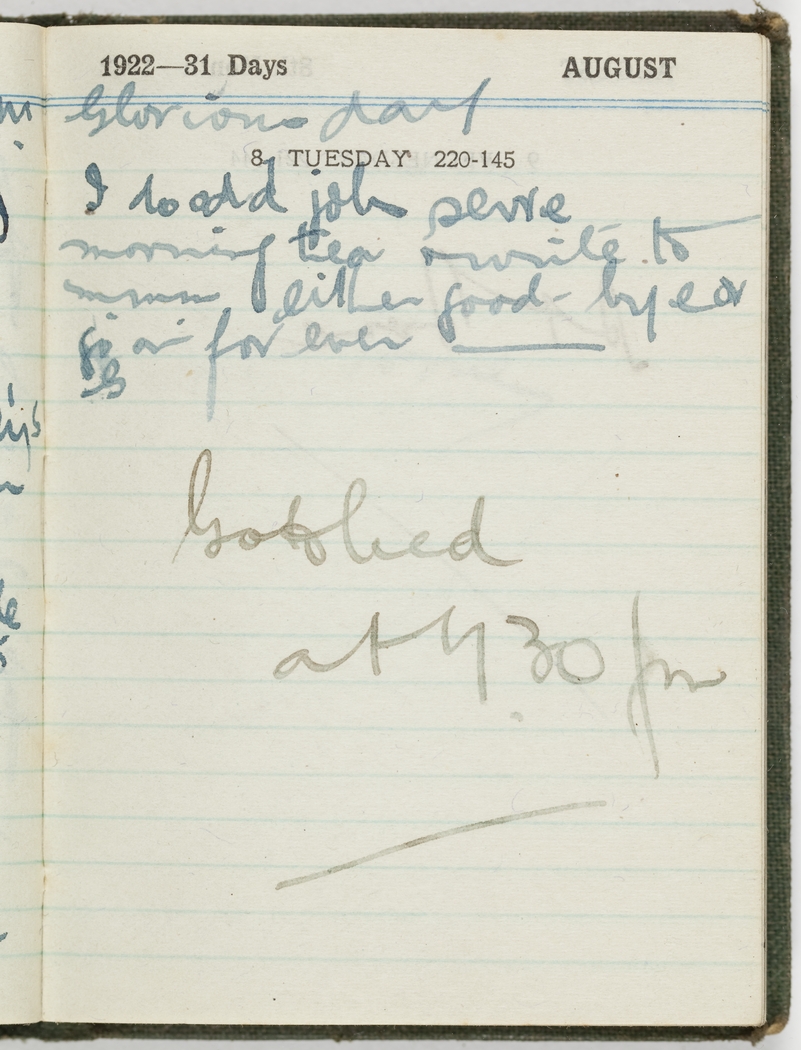 1922—31 Days AUGUST
Glorious day
8 TUESDAY 220-145
I do odd jobs serve
morning tea & write to
mum either good-bye or
for ever
at 7 30 pm